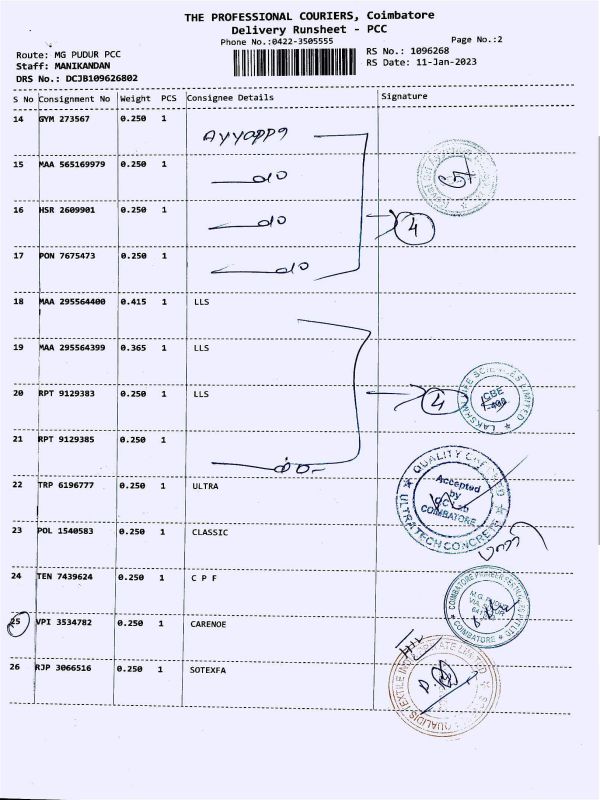 THE PROFESSIONAL COURIERS, Coimbatore
Delivery Runsheet - PCC
Phone No.:0422-3505555
Page No.:2
Route: MG PUDUR PCC
RS No.: 1096268
Staff: MANIKANDAN
RS Date: 11-Jan-2023
DRS No.: DCJB109626802
S No Consignment No Weight PCS Consignee Details Signature
14 GYM 273567 0.250 1 Ayyappa
15 MAA 565169979 0.250 1 do
16 HSR 2609901 0.250 1 do 4
17 PON 7675473 0.250 1 do
18 MAA 295564400 0.415 1 LLS
19 MAA 295564399 0.365 1 LLS
20 RPT 9129383 0.250 1 LLS 4
LAKSHMI LIFE SCIENCES LIMITED
CBE
21 RPT 9129385 0.250 1 do
22 TRP 6196777 0.250 1 ULTRA
QUALITY
Accepted
by
COIMBATORE
ULTRATECH CONCRETE
23 POL 1540583 0.250 1 CLASSIC
24 TEN 7439624 0.250 1 C P F
COIMBATORE
M.G. PUDUR
25 VPI 3534782 0.250 1 CARENOE
26 RJP 3066516 0.250 1 SOTEXFA